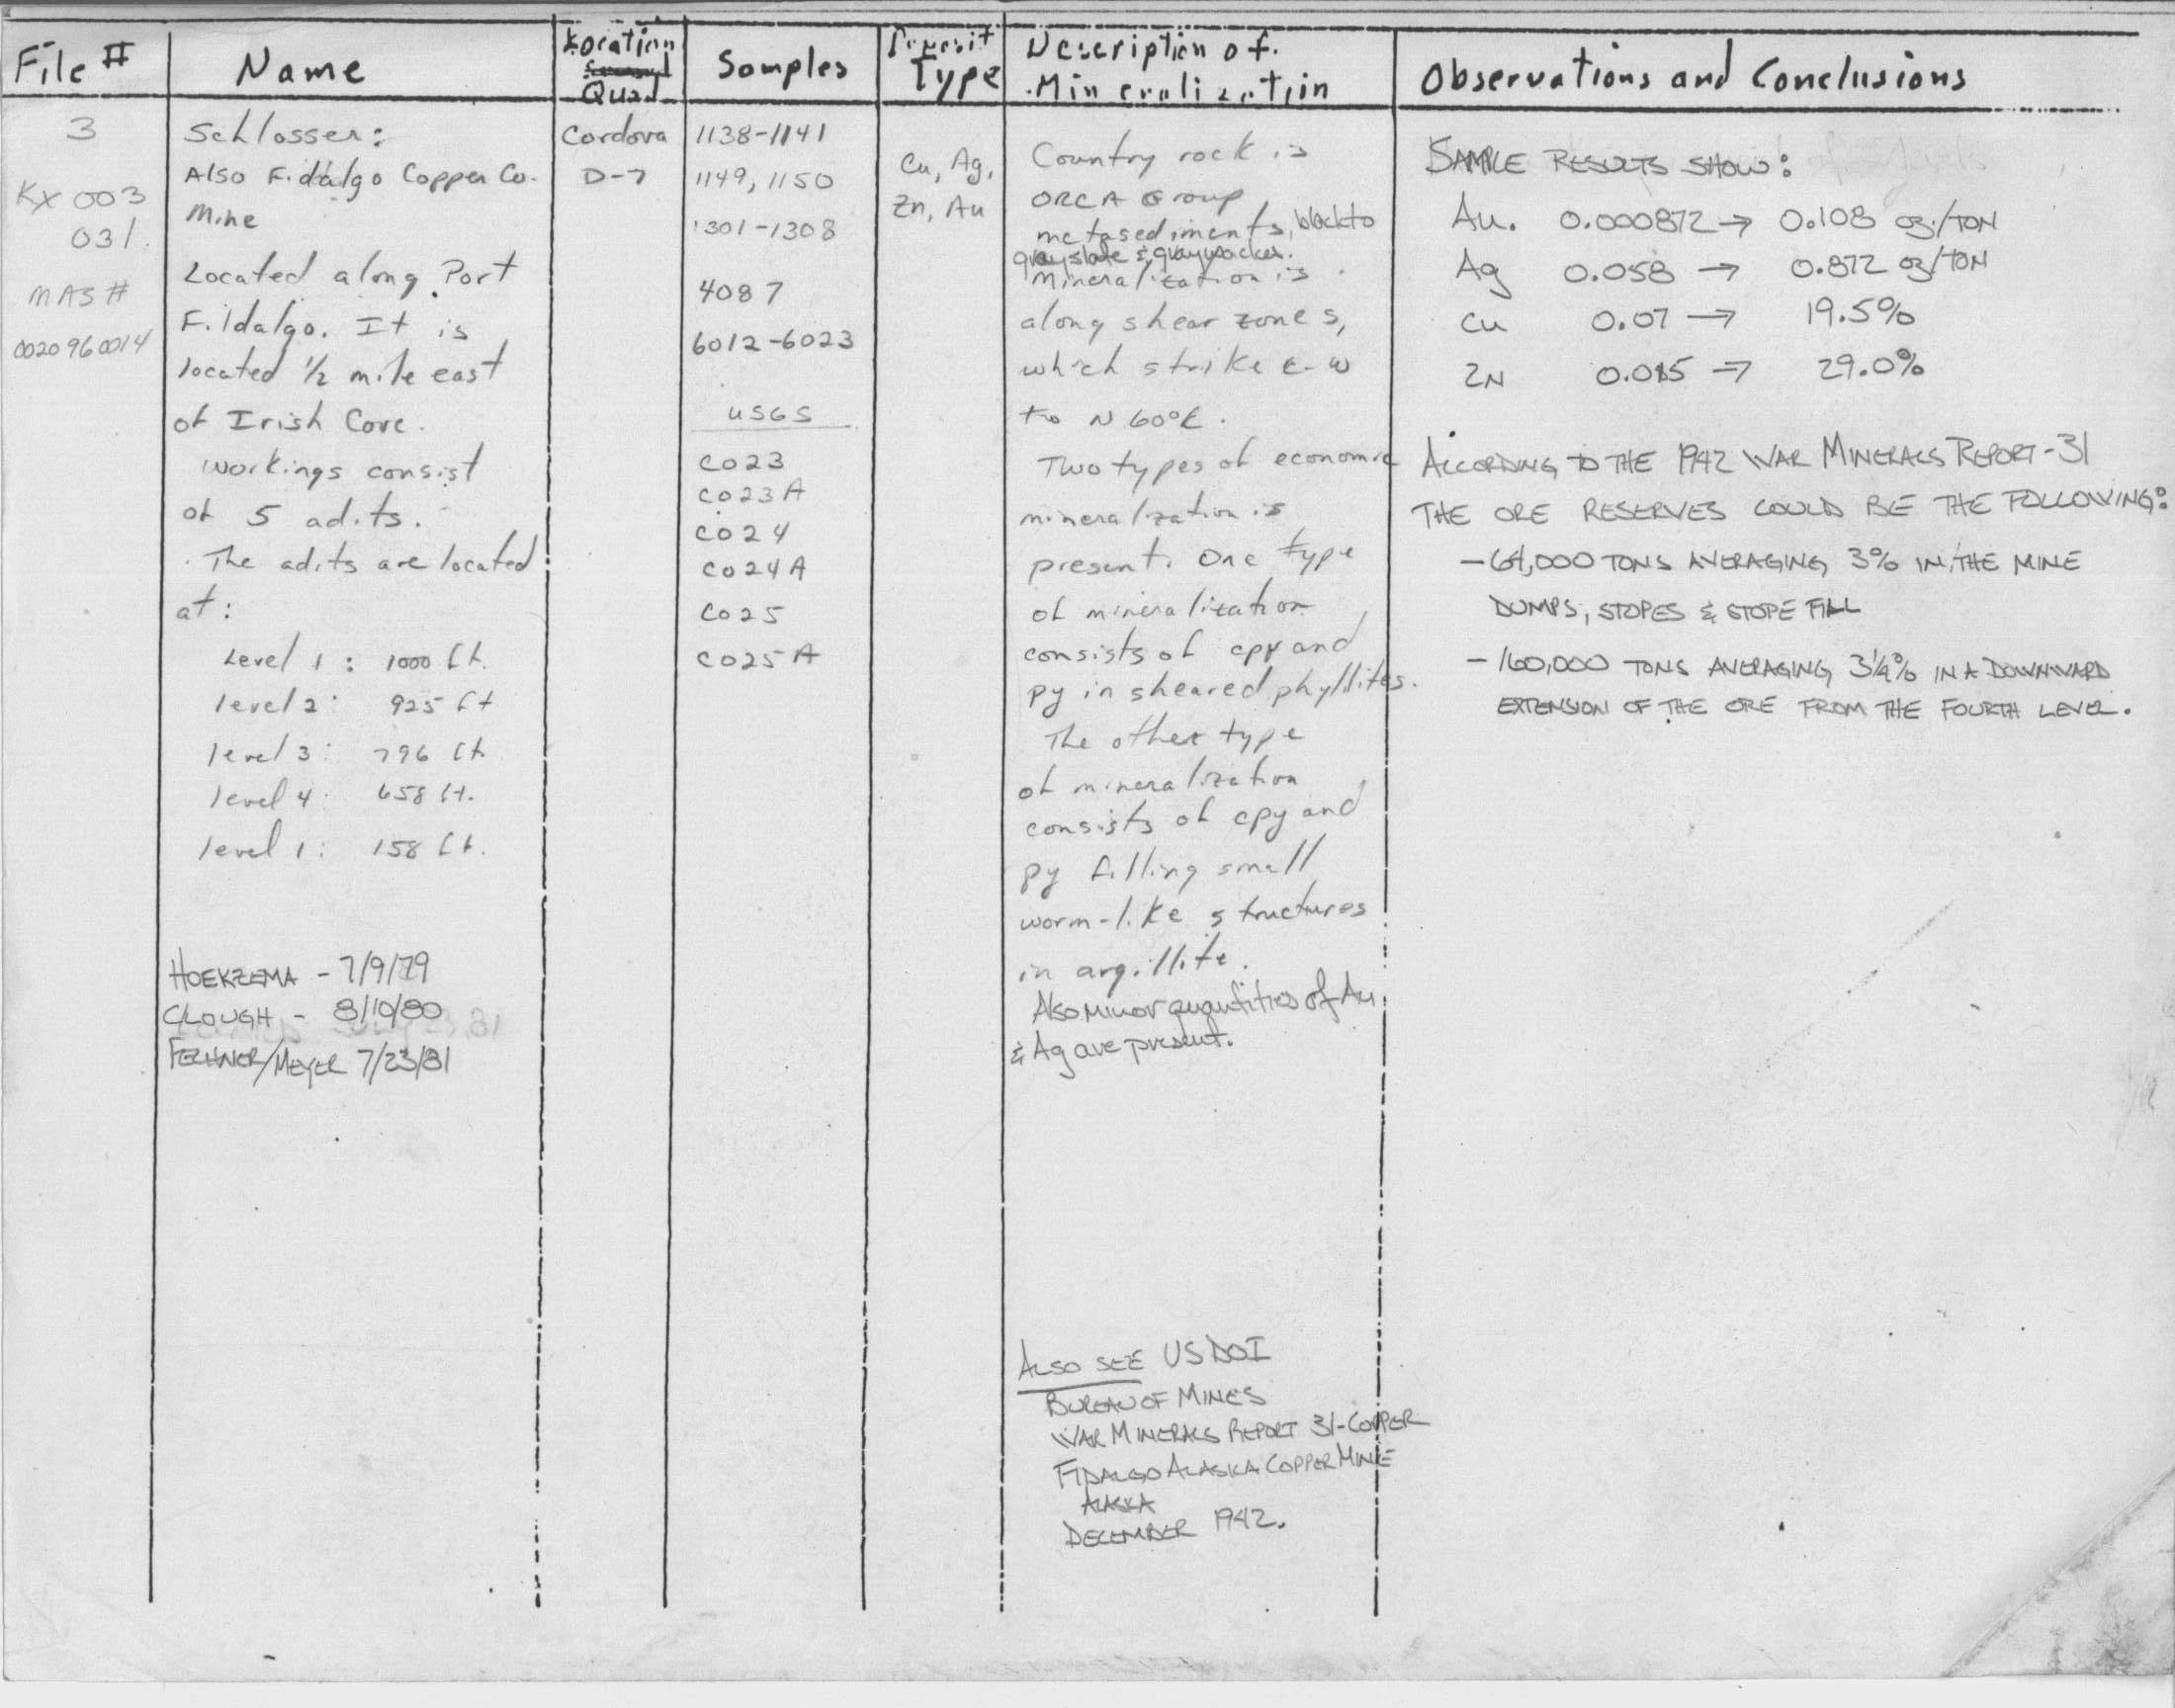 File #
3
KX 003
031.
MAS #
0020960014
Name
Schlosser:
Also Fidalgo Copper Co.
Mine
Located along Port
Fildalgo. It is
located 1/2 mile east
of Irish Cove.
workings consist
of 5 adits.
The adits are located
at:
Level 1 : 1000 ft.
level 2: 925 ft
level 3: 796 ft
level 4: 658 ft.
level 1: 158 ft.
HOEKZEMA - 7/9/79
CLOUGH - 8/10/80
FECHNER/MEYER 7/23/81
Location
Quad
Cordova
D-7
Samples
1138-1141
1149, 1150
1301-1308
4087
6012-6023
USGS
C023
C023A
C024
C024A
C025
C025A
Deposit
Type
Cu, Ag,
Zn, Au
Description of
Mineralization
Country rock is
ORCA Group
metasediments, black to
gray slate & graywacke.
Mineralization is
along shear zones,
which strike E-W
to N 60°E.
Two types of economic
mineralization is
present. One type
of mineralization
consists of cpy and
py in sheared phyllites.
The other type
of mineralization
consists of cpy and
py filling small
worm-like structures
in argillite.
Also minor quantities of Au
& Ag are present.
ALSO SEE US DOI
BUREAU OF MINES
WAR MINERALS REPORT 31-COPPER
FIDALGO ALASKA COPPER MINE
ALASKA
DECEMBER 1942.
Observations and Conclusions
SAMPLE RESULTS SHOW:
Au. 0.000872 → 0.108 oz/TON
Ag 0.058 → 0.872 oz/TON
Cu 0.07 → 19.5%
ZN 0.015 → 29.0%
ACCORDING TO THE 1942 WAR MINERALS REPORT-31
THE ORE RESERVES COULD BE THE FOLLOWING:
-64,000 TONS AVERAGING 3% IN THE MINE
DUMPS, STOPES & STOPE FILL
-160,000 TONS AVERAGING 3 1/4% IN A DOWNWARD
EXTENSION OF THE ORE FROM THE FOURTH LEVEL.